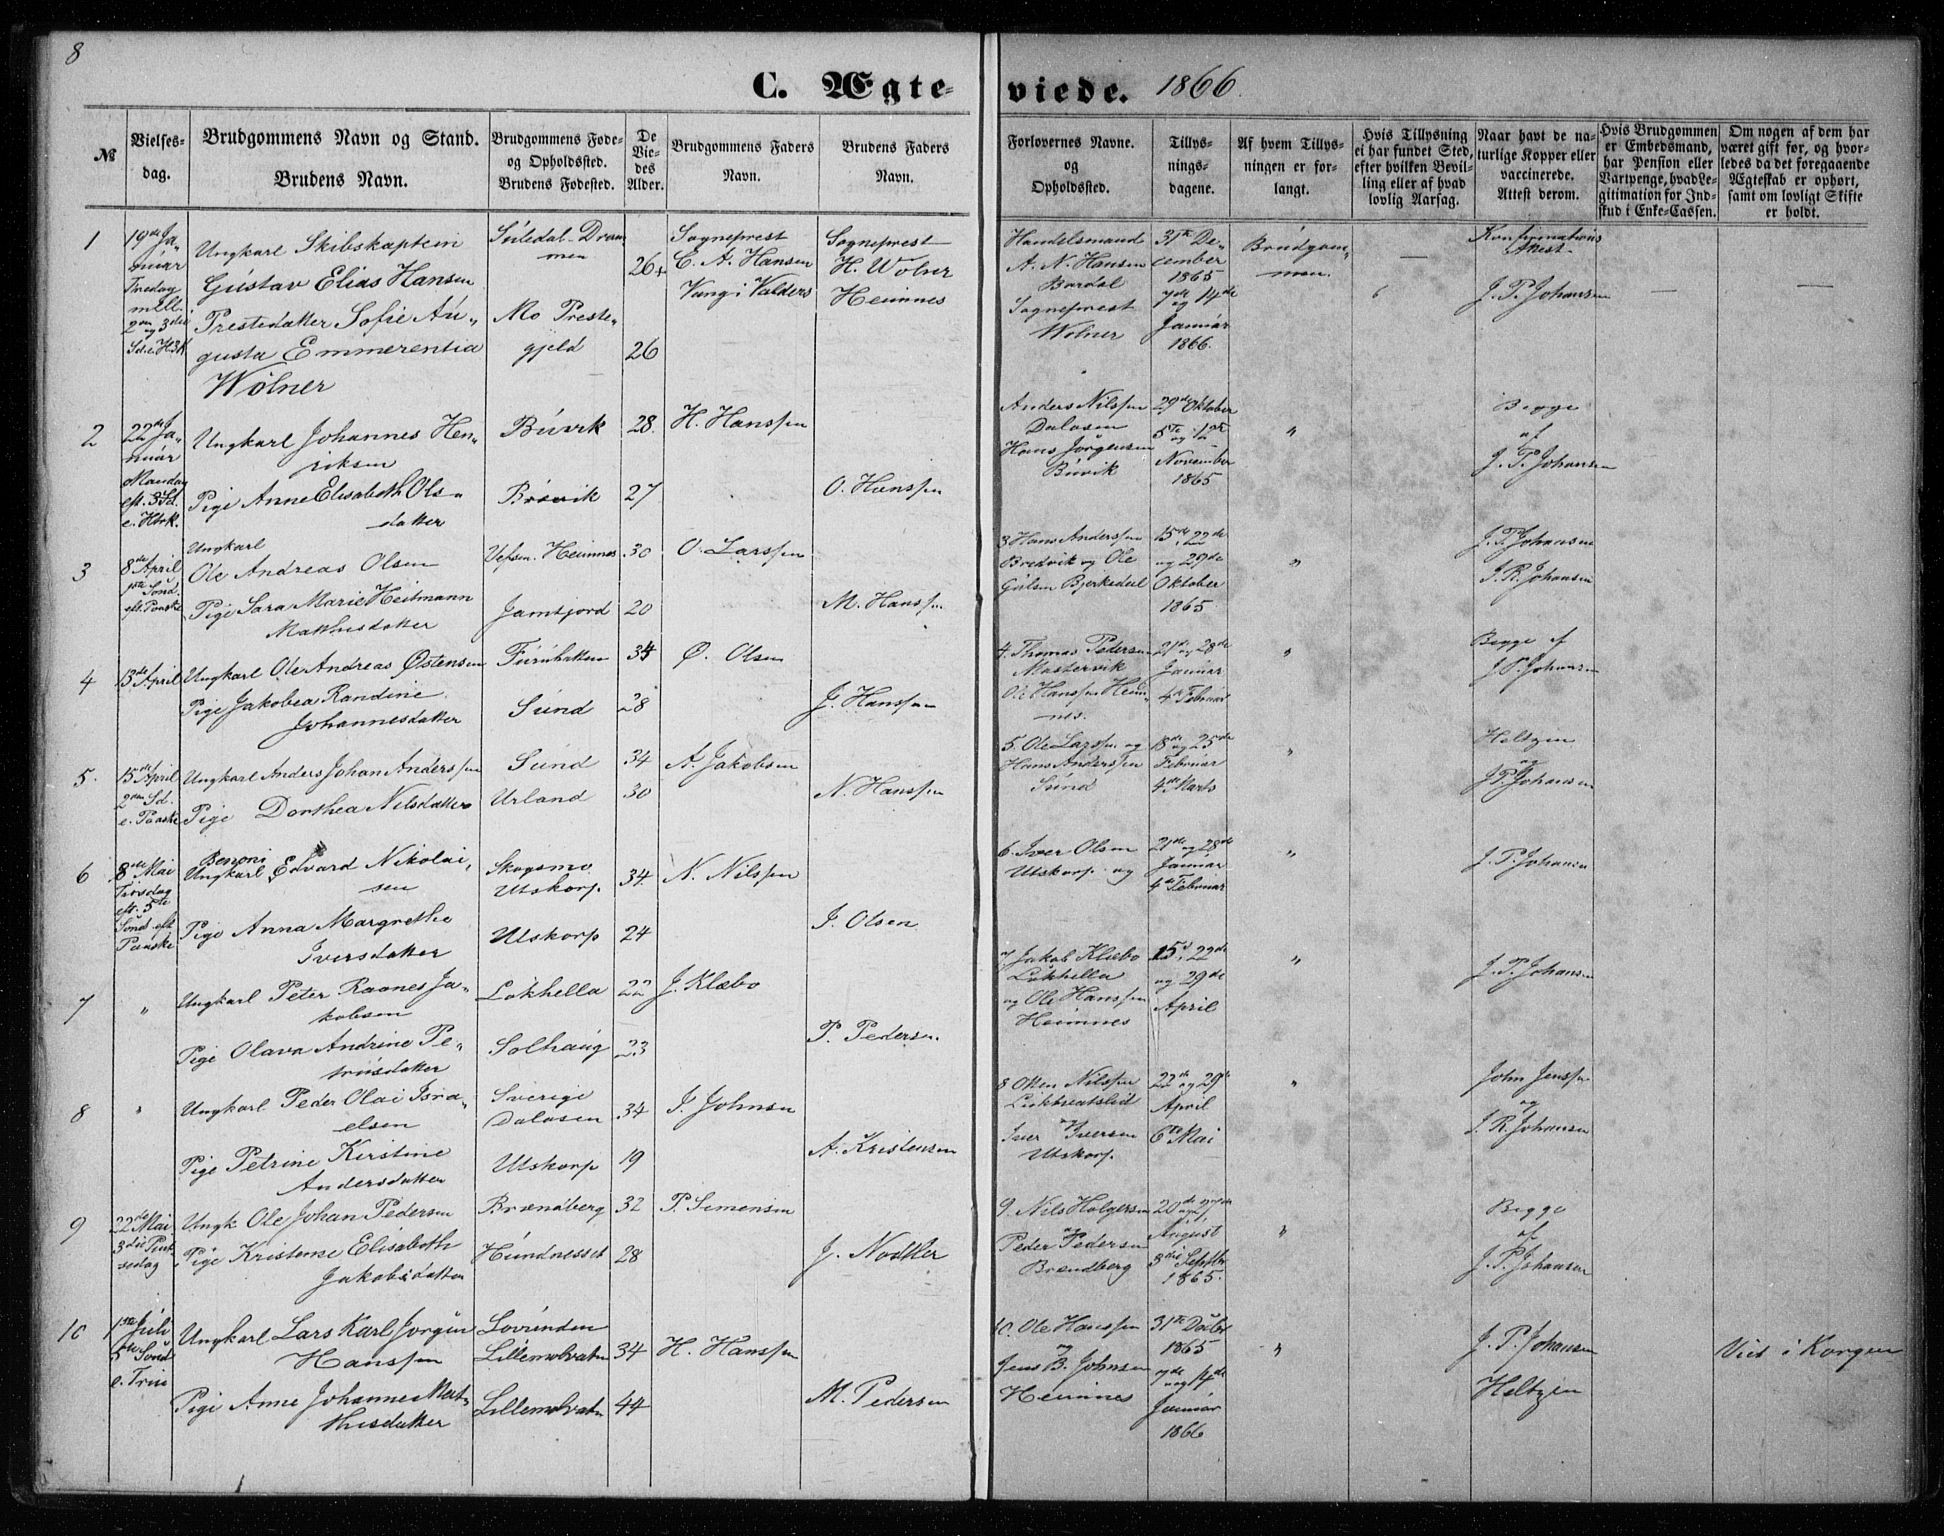 8
C. Ægte-
viede. 1866.
№
Vielses-
dag.
Brudgommens Navn og Stand.
Brudens Navn.
Brudgommens Føde-
og Opholdssted.
Brudens Fødested.
De
Vie-
des
Alder.
Brudgommens Faders
Navn.
Brudens Faders
Navn.
Forlovernes Navne.
og
Opholdssted.
Tillys-
nings-
dagene.
Af hvem Tillys-
ningen er for-
langt.
Hvis Tillysning
ei har fundet Sted,
efter hvilken Bevil-
ling eller af hvad
lovlig Aarsag.
Naar havt de na-
turlige Kopper eller
vaccinerede.
Attest derom.
Hvis Brudgommen
er Embedsmand,
har Pension eller
Vartpenge, hvad Le-
gitimation for Ind-
skud i Enke-Cassen.
Om nogen af dem har
været gift før, og hvor-
ledes da det foregaaende
Ægteskab er ophørt,
samt om lovligt Skifte
er holdt.
1
19de Ja-
nuar
Fredag
mell.
2den og 3die
Sd. e. H3K
Ungkarl Skibskaptein
Gustav Elias Hansen
Prestedatter Sofie Au-
gusta Emmerentia
Wølner
Suledal-Dram
men
Mo Preste-
gjeld
26
26
Sogneprest
C. A. Hansen
Vang i Valders
Sogneprest
H. Wølner
Hemnes
Handelsmand
A. N. Hansen
Bardal
Sogneprest
Wølner
31te De-
cember
1865
7de og 14de
Januar
1866.
Brudgom-
men.
—
Konfirmations
Attest
J. P. Johansen
—
—
2
22de Ja-
nuar
Mandag
eft. 3 Sd.
e. H3k.
Ungkarl Johannes Hen-
riksen
Pige Anne Elisabeth Ols-
datter
Buvik
Brøvik
28.
27
H. Hanssen
O. Hanssen
Anders Nilssen
Dalosen
Hans Jørgensen
Buvik
29de Oktober
5te og 12te
November
1865
"
Begge
af
J. P. Johansen
3
8de April
1ste Sønd.
eft. Paaske
Ungkarl
Ole Andreas Olsen
Pige Sara Marie Heitmann
Mathisdatter
Vefsen. Hemnes
Jamtjord
30
20
O. Larssen
M. Hanssen
3 Hans Anderssen
Bredvik og Ole
15de, 22de
og 29de
Oktober
1865
"
J. P. Johansen
J. R. Johansen
4
13de April
Ungkarl Ole Andreas Østensen
Pige Jakobea Randine
Johannesdatter
Furuhatten
Sund
34
28
Ø. Olsen
J. Hanssen
4. Thomas Pedersen
Mastervik
Ole Hanssen Hem-
nes.
21de og 28de
Januar
4de Februar
"
Begge af
J. P. Johansen
5.
15de April
2den Sd.
e. Paaske
Ungkarl Anders Johan Anderssen
Pige Dorthea Nilsdatter
Sund
Urland
34
30
A. Jakobsen
N. Hanssen
5. Ole Larssen og
Hans Anderssen
Sund
18de og 25de
Februar
4de Marts
"
Heltzen
og
J. P. Johansen
6
8de Mai
Tirsdag
eft. 5te
Sønd. eft.
Paaske
Benoni
Ungkarl Edvard Nikolai-
sen
Pige Anna Margrethe
Iversdatter
Skogsmo
Utskorp.
Utskorp
34.
24
N. Nilssen
I. Olsen
6. Iver Olsen
Utskorp og
21de og 28de
Januar
4de Februar
"
J. P. Johansen
7
"
Ungkarl Peter Raanes Ja-
kobsen
Pige Olava Andrine Pe-
trusdatter
Løkhella
Solhaug
22
23
J. Klæbo
P. Pedersen.
7 Jakob Klæbo
Løkhella
og Ole Hanssen
Hemnes
15d, 22de
og 29de
April
"
J. P. Johansen
8
"
Ungkarl Peder Olai Isra-
elsen
Pige Petrine Kirstine
Andersdatter
Sverige
Dalosen
Utskorp
34
19
I. Johnsen
A. Kristensen
8 Otten Nilssen
og
Iver Iversen
Utskorp.
22de og 29de
April
6te Mai
"
John Jenssen
og
J. R. Johansen
9
22de Mai
3die Pint-
sedag
Ungk Ole Johan Pedersen
Pige Kristense Elisabeth
Jakobsdatter
Brændberg
Hundnesset
32
28
P. Simensen
J. Nostler
9. Nils Holgersen
og
Peder Pedersen
Brændberg
20de og 27de
August
3die Septbr
1865.
"
Begge
af
J. P. Johansen
10
1ste Juli
5te Sønd
e. Trin
Ungkarl Lars Karl Jørgen
Hanssen
Pige Anne Johannes Mat-
thisdatter
Lovunden
Lillemolvatn
Lillemolvatn
34
44
H. Hanssen
M. Pedersen
10. Ole Hanssen
og
Jens B. Johnsen
Hemnes
31te Decbr
1865
7de og 14de
Januar
1866
"
J. P. Johansen
Heltzen
Viet i Korgen